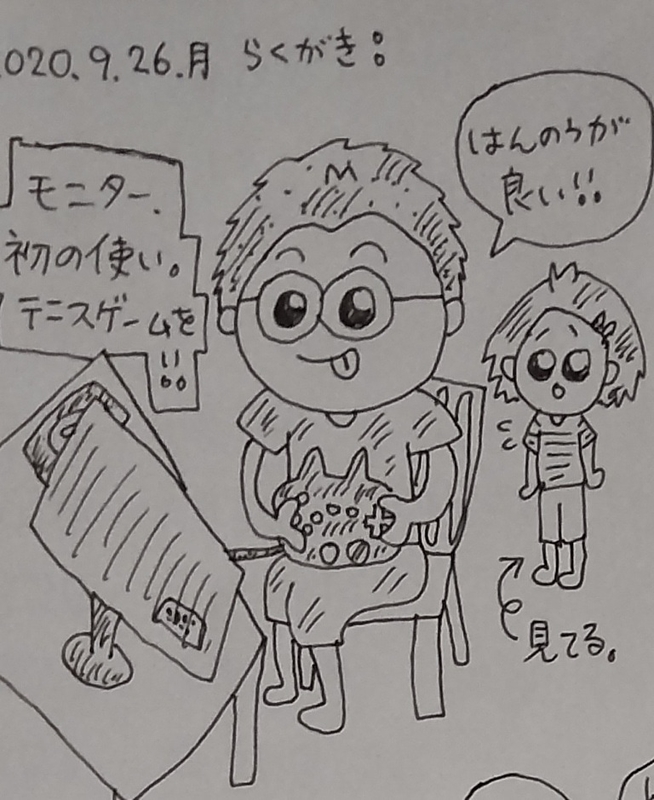 2020.9.26.月 らくがき:
はんのうが
良い!!
モニター、
初の使い。
テニスゲームを
!!
見てる。